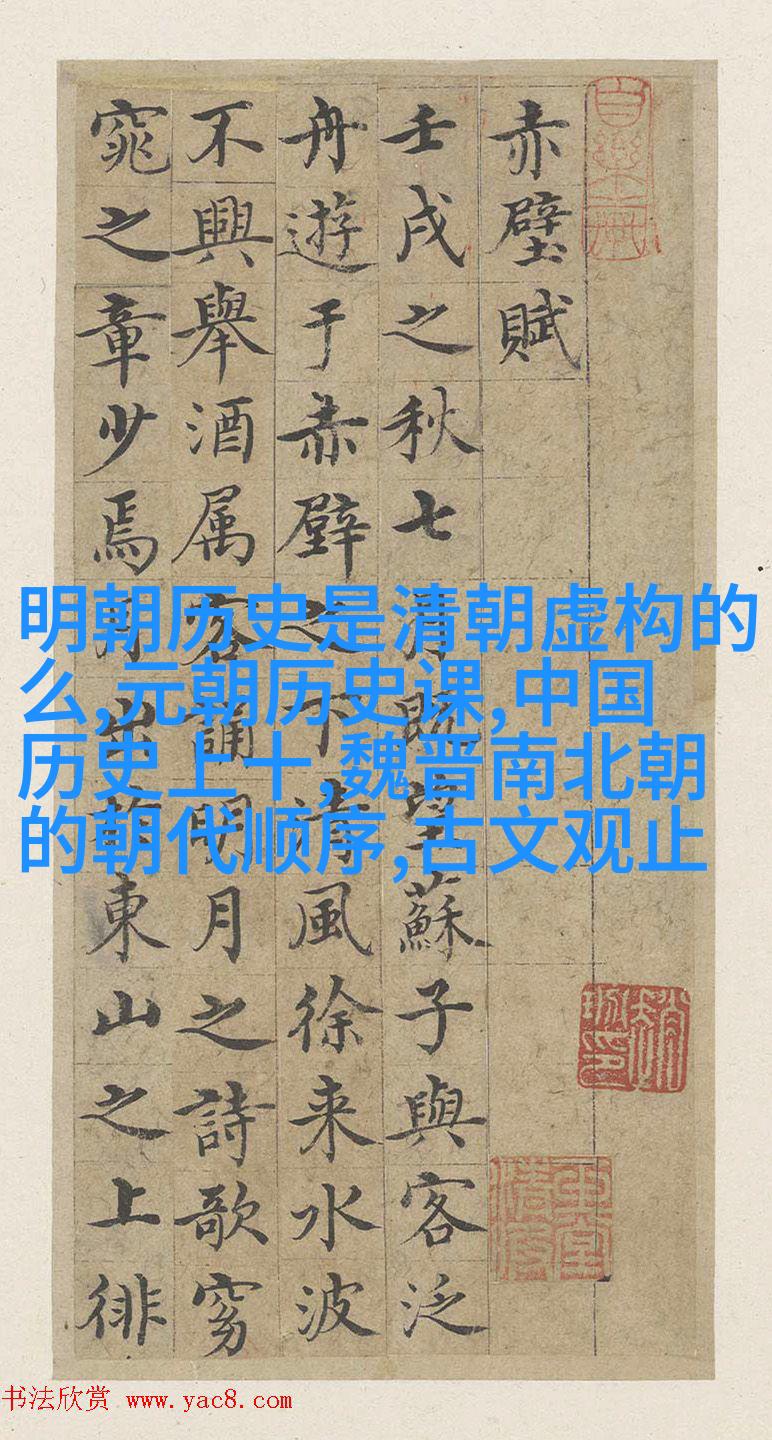 赤壁賦
壬戌之秋七
月既望蘇子與客泛
舟遊于赤壁之下清風徐来水波
不興舉酒属客誦明月之詩歌窈
窕之章少焉月出於東山之上徘
明朝历史是清朝虚构的
么,元朝历史课,中国
历史上十,魏晋南北朝
的朝代顺序,古文观止
书法欣赏 www.yac8.com